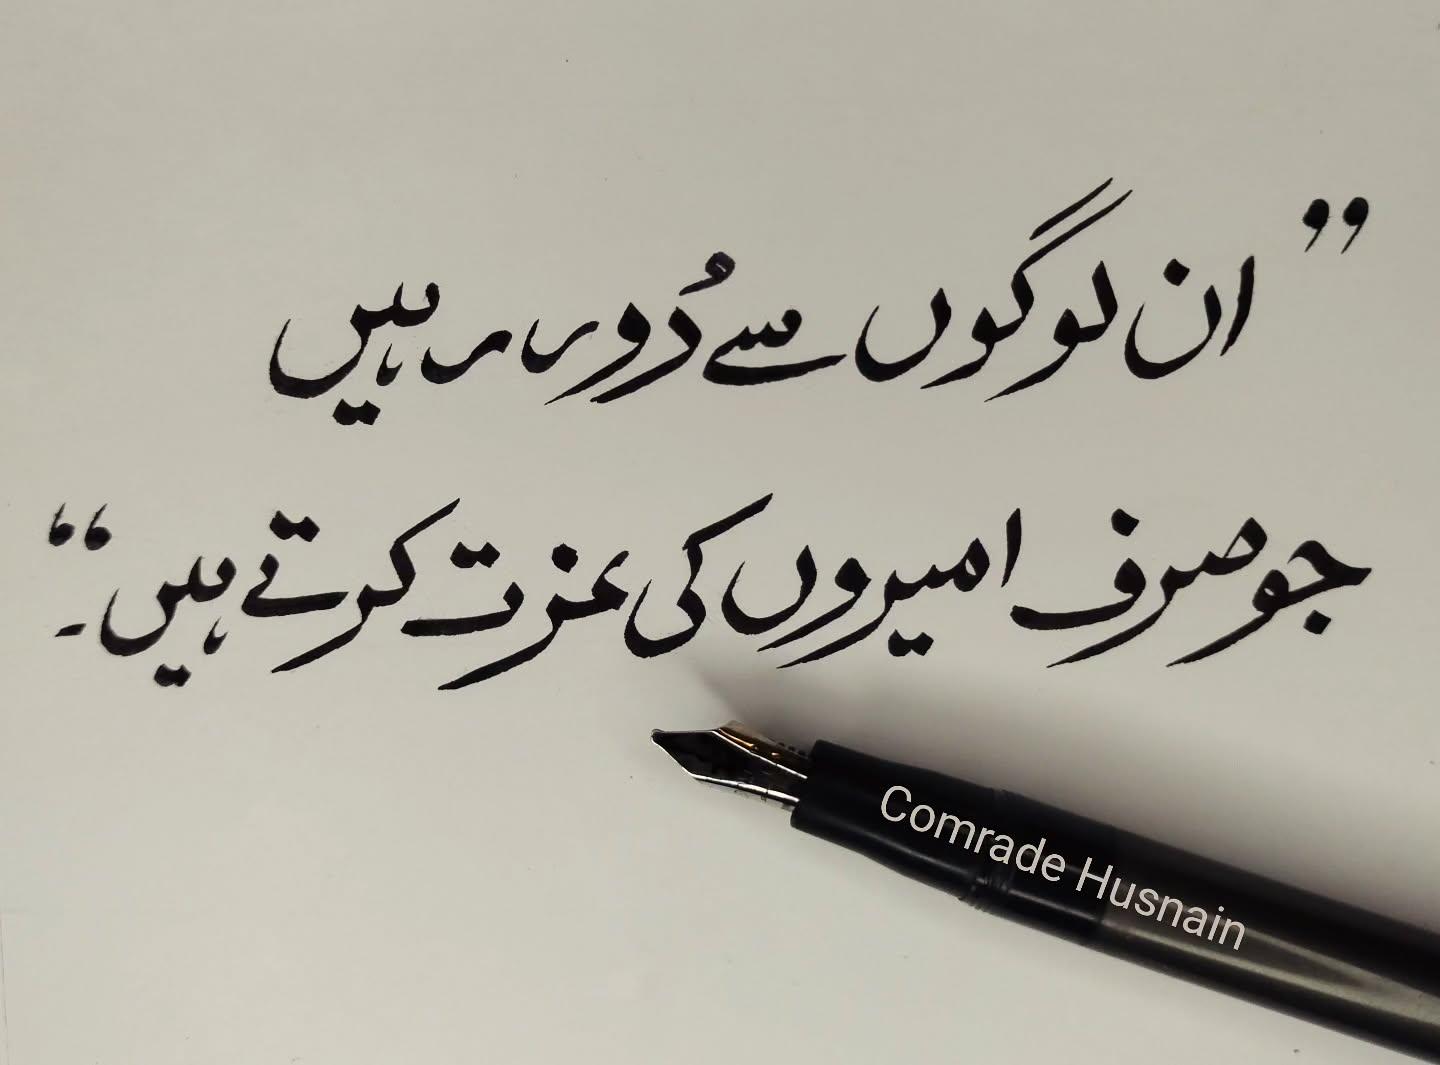 ”ان لوگوں سے دُور رہیں
جو صرف امیروں کی عزت کرتے ہیں“۔
Comrade Husnain